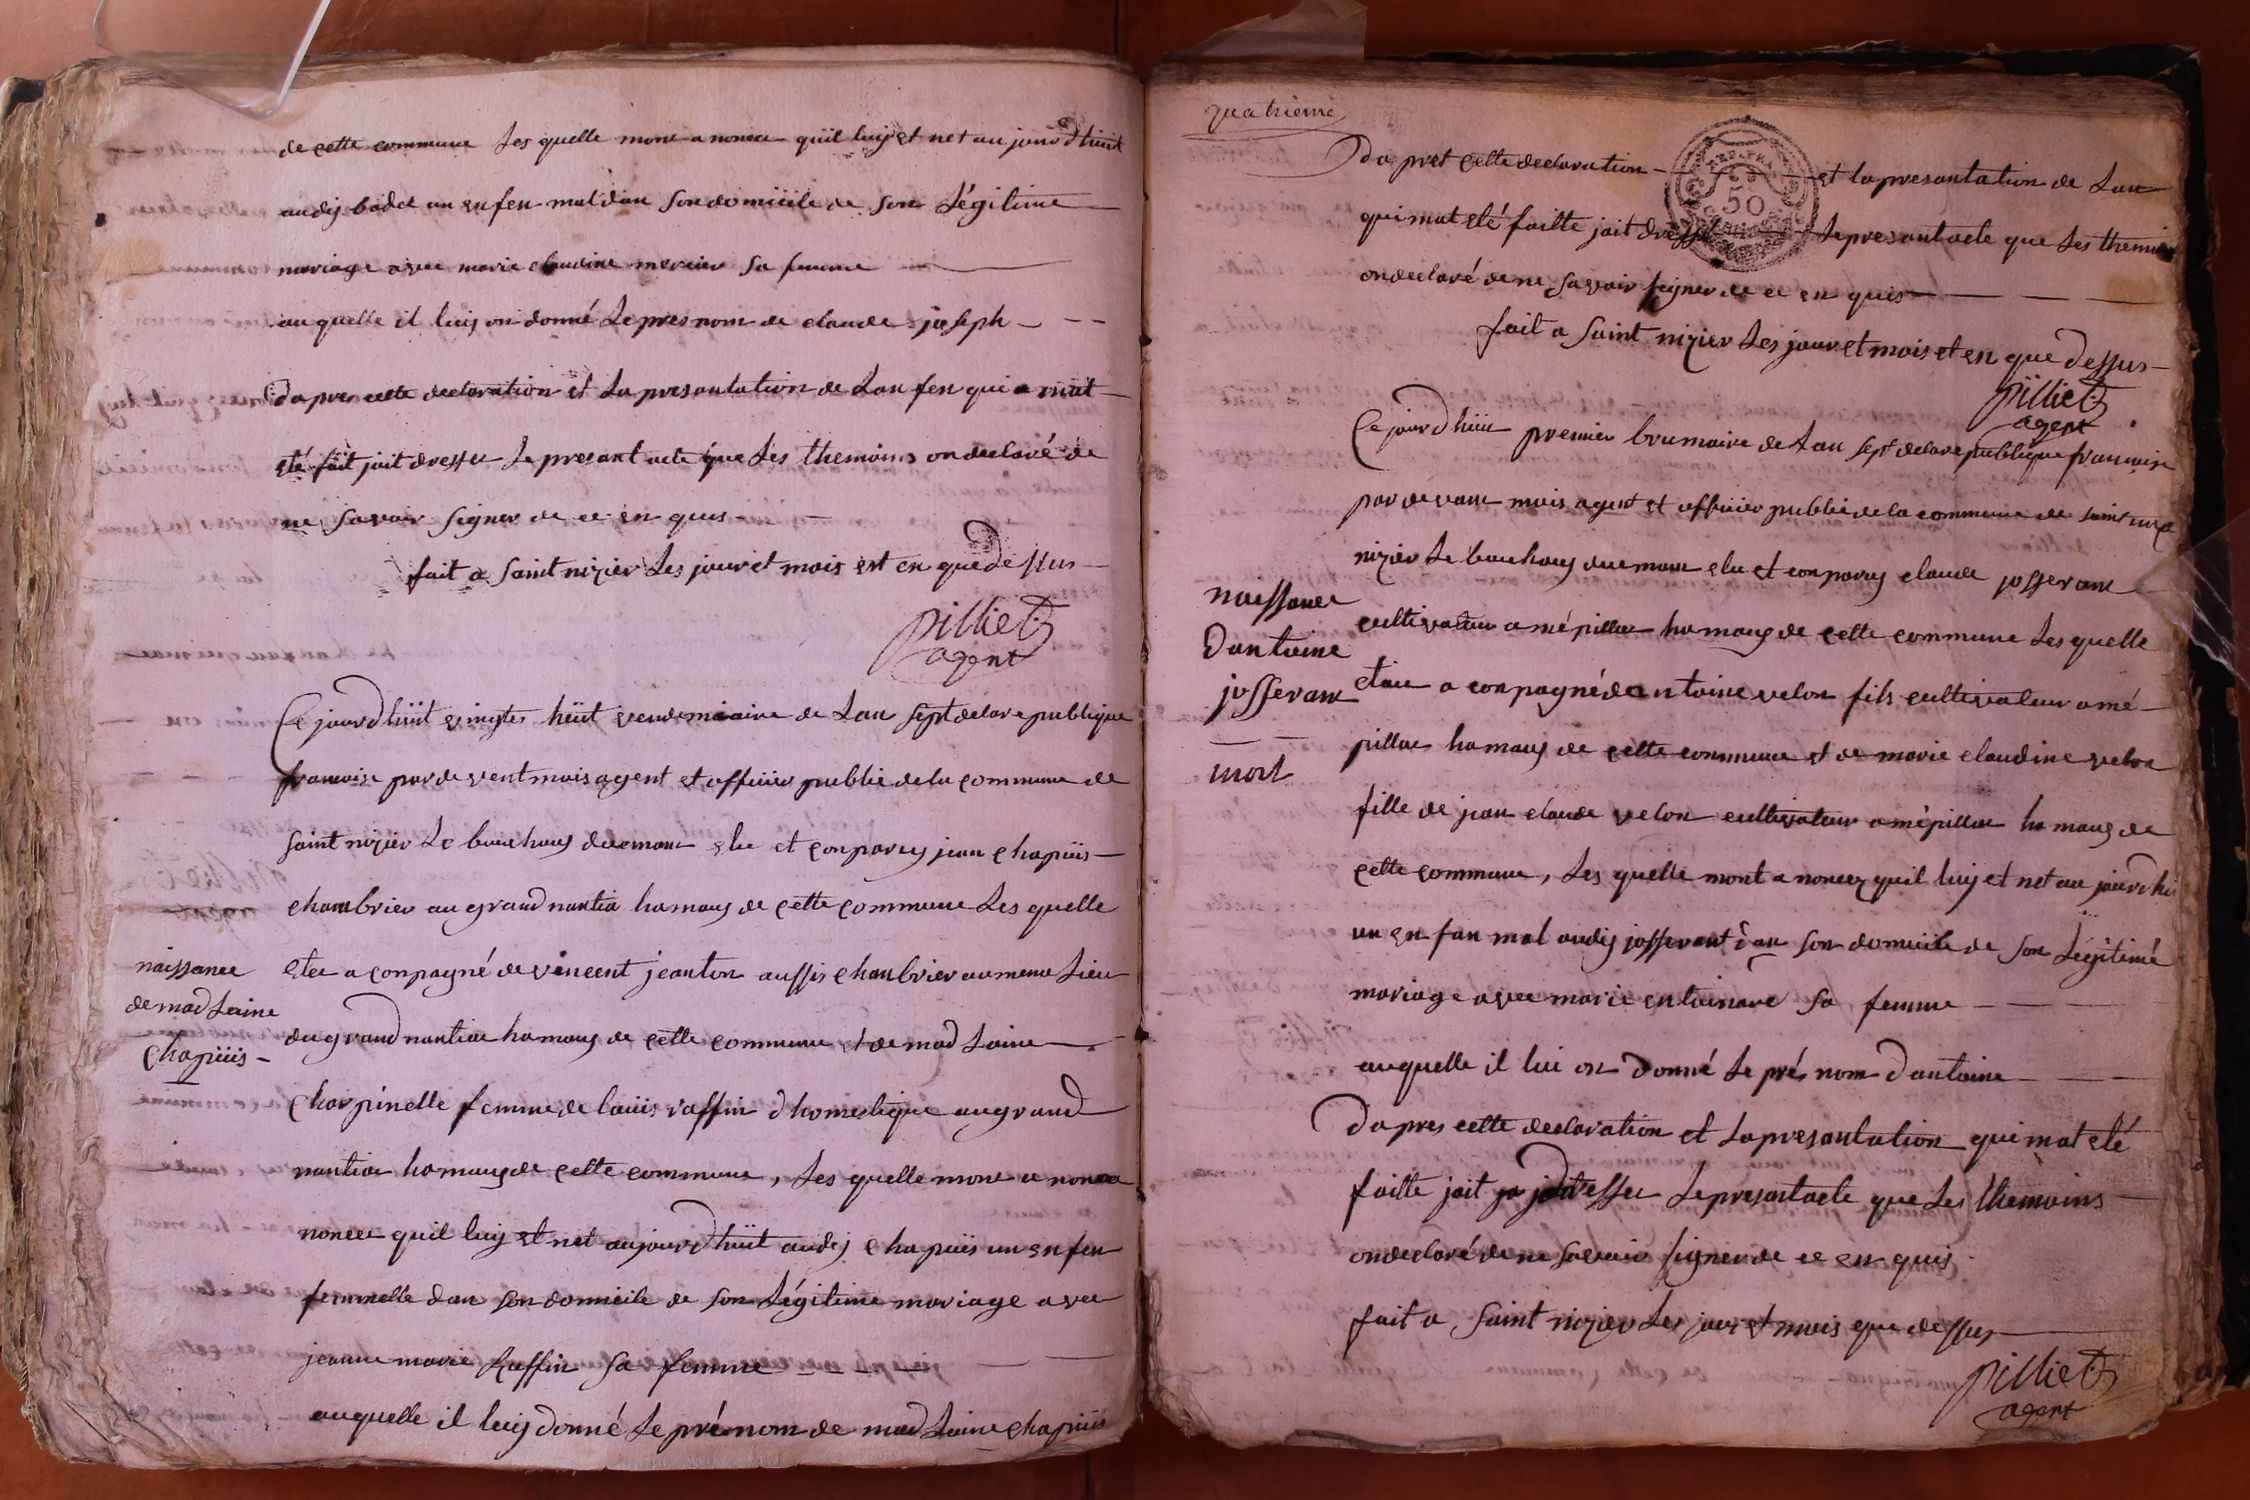 de cette commune Les quelle mont a noncu quil luy et net au jourdhuit
audij badet un enfen mal dan son domicile de son Légitime
mariage avec marie claudine mercier sa femme
au quelle il luij on donné Le presnom de claude joseph
Dapres cette declaration et La presantation de Lanfen qui a mat
eté fait jait dresser Le presant acte que Les themoins on declaré de
ne savoir signer de ce en quis
fait a saint nizier Les jour et mois et en que dessus
pilliet
agent
Ce jourdhuit vingtes huit vendemiaire de Lan sept de la republique
francoise par devent mois agent et officier public de la commune de
saint nizier Le bouchouy duemant elu et conparuy jean chapuis
chambrier au grand nantia hamauy de cette commune Les quelle
etee a conpagné de vincent jeanton aussis chanbrier au meme Lieu
du grand nantiat hamauy de cette commune et de mad Laine
naissance
de mad Laine
chapuis
charpinelle femme de louis raffin dhomestique au grand
nantiat hamauy de cette commune, Les quelle mont a nonce
noncer quil luij et net aujourdhuit audij chapuis un enfen
femmelle dan son domicile de son Légitime mariage avec
jeanne marie Ruffin sa femme
auquelle il luij donné Le prénom de mad Laine chapuis
quatrieme
Dapret cette declaration et la presantation de Lan
REP. FRA.
50
qui mat eté faitte jait dresser Le presant acte que Les themins
on declaré de ne savoir signer de ce en quis
fait a saint nizier Les jour et mois et en que dessus
pilliet
agent
Ce jourdhui premier brumaire de Lan sept de la republique francoise
par devant mois agent et officier public de la commune de saint
nizier Le bouchouy duemant elu et conparuy claude josserant
naissance
Dantoine
josserant
mort
cultivateur a mépillat hamauy de cette commune Les quelle
etant a conpagné de antoine velon fils cultivateur a mé
pillat hamauy de cette commune et de marie claudine velon
fille de jean claude velon cultivateur a mépillat hamauy de
cette commune, Les quelle mont a noncez quil luij et net au jourdhui
un enfan mal audij josserant dan son domicile de son Légitimé
mariage avec marie sa femme
auquelle il lui on donné Le prés nom dantoine
Dapres cette declaration et La presantation qui mat eté
faitte jait dresser Le presant acte que Les themoins
on declaré de ne savoir signer de ce en quis
fait a saint nizier Les jour et mois que dessus
pilliet
agent